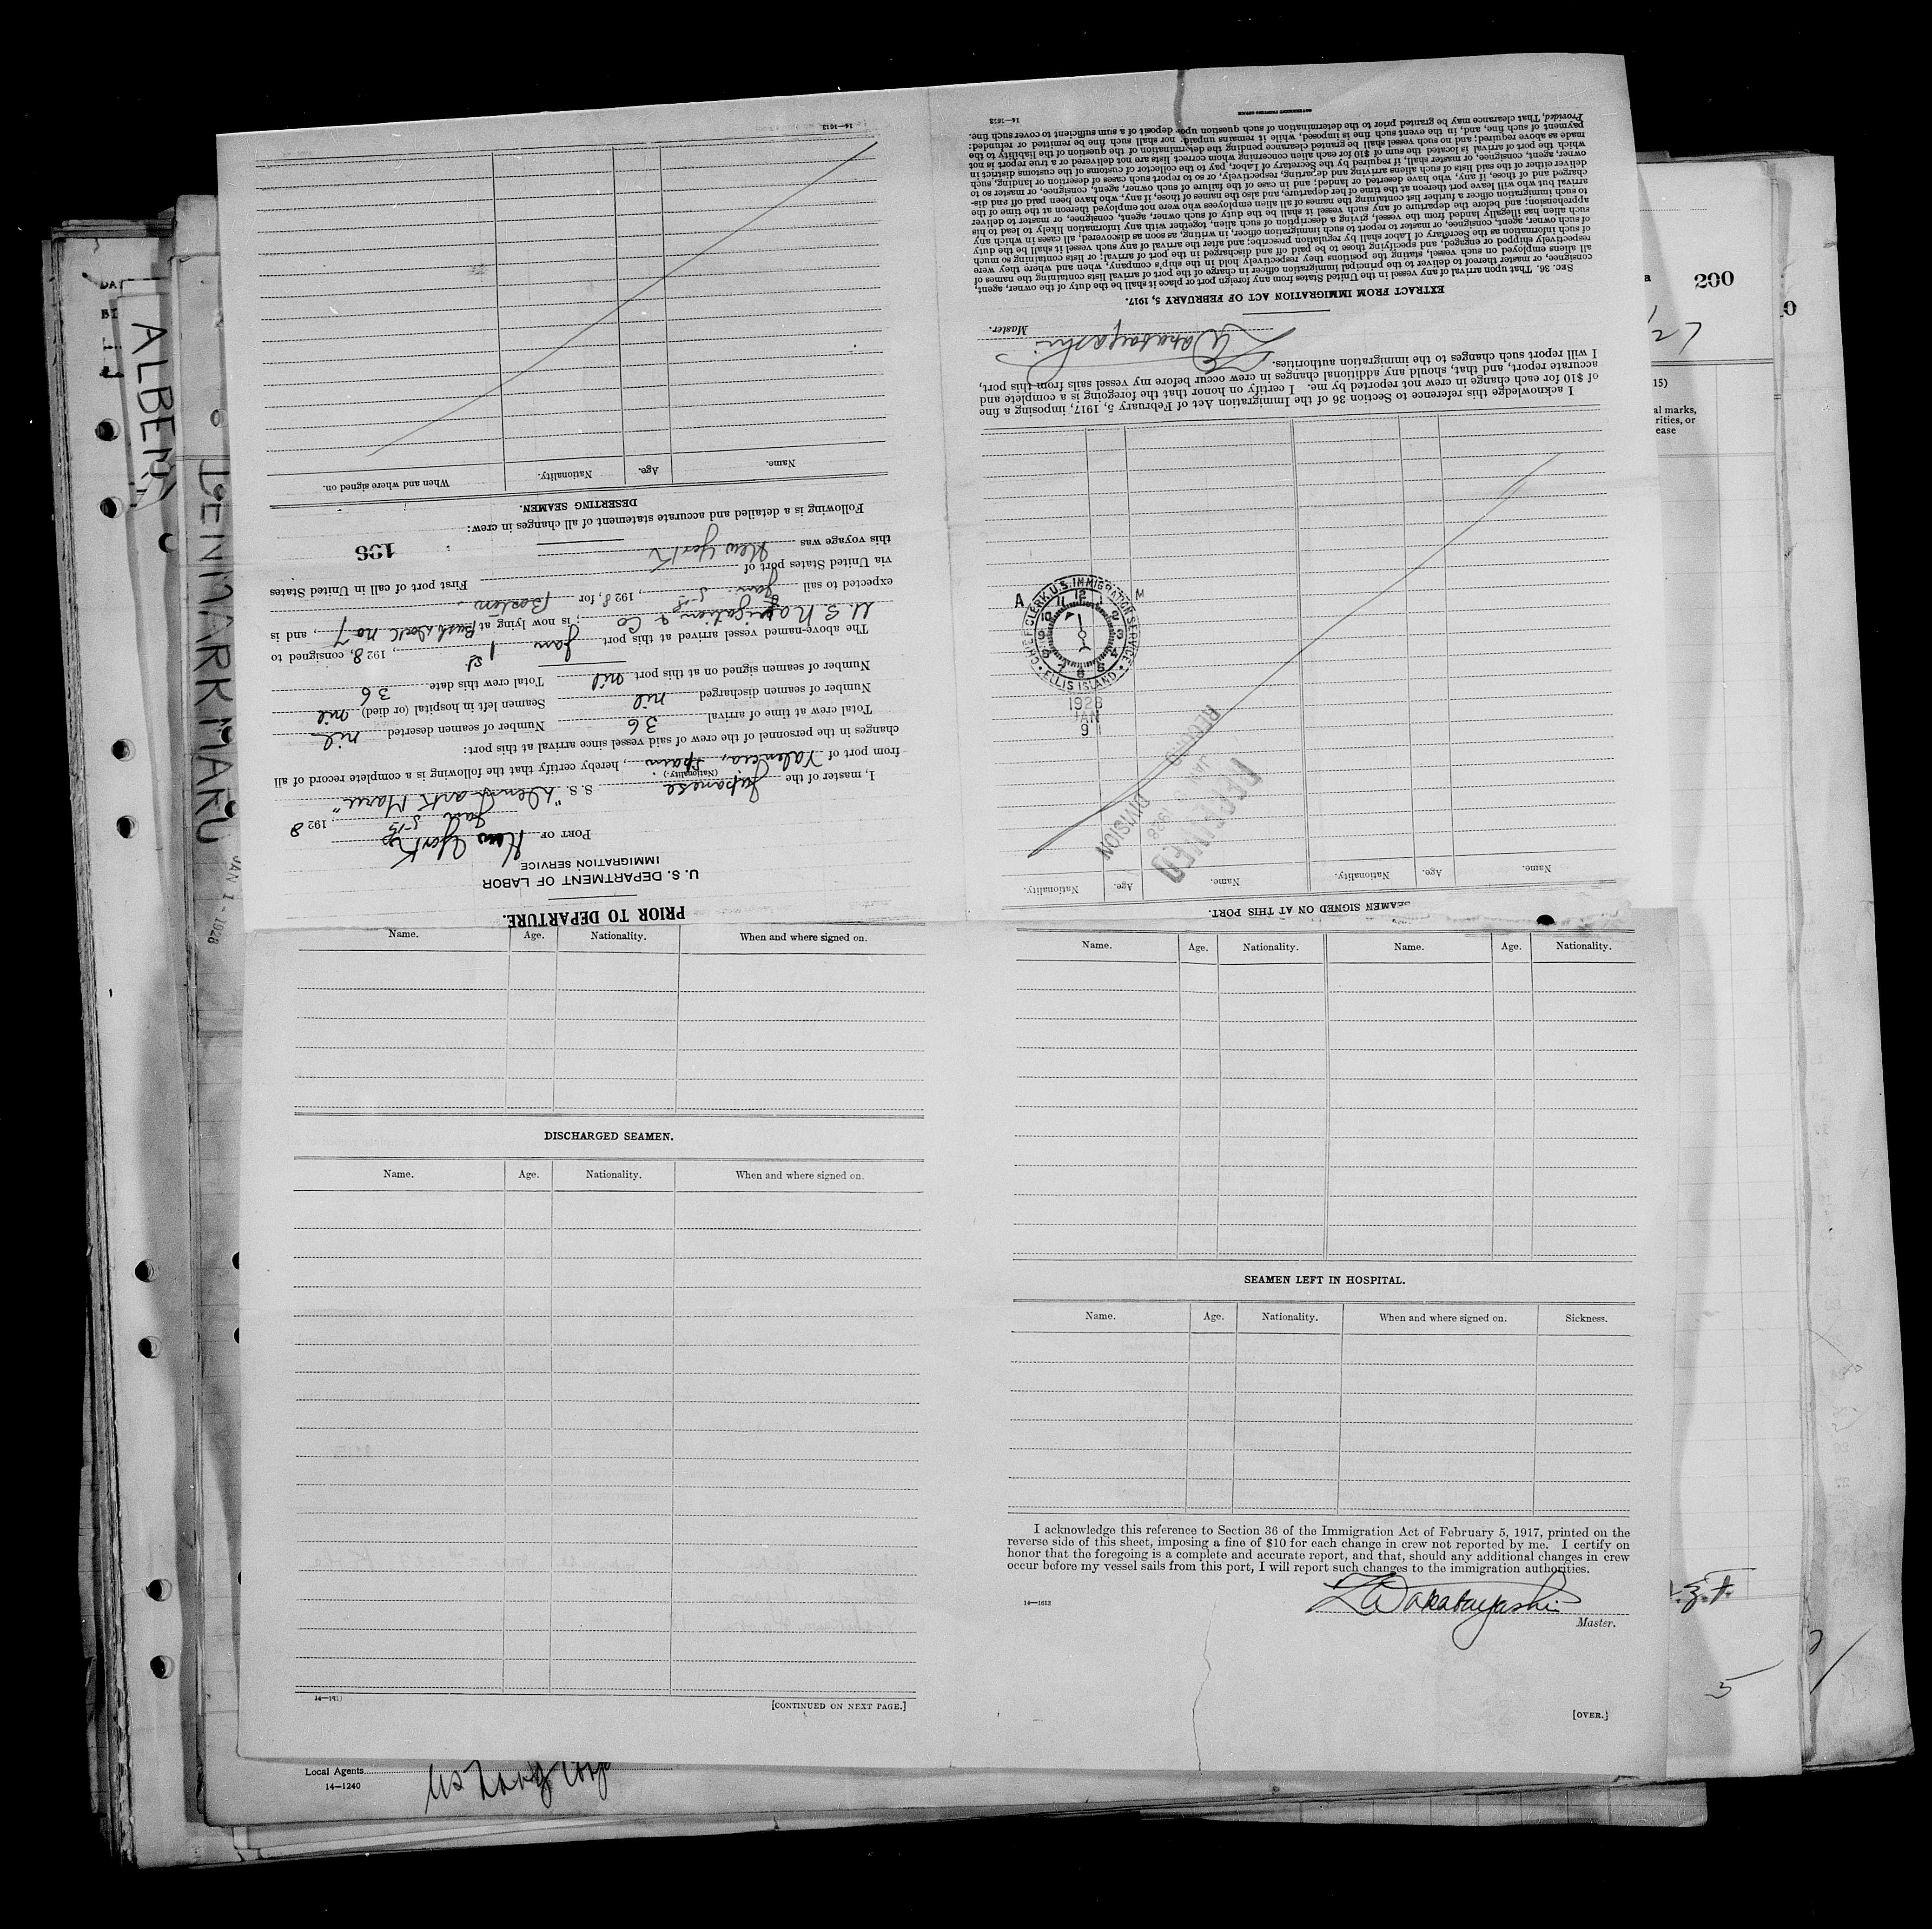 PRIOR TO DEPARTURE.
U. S. DEPARTMENT OF LABOR
IMMIGRATION SERVICE
PORT OF New York
Jan 5-th, 1928
I, master of the Japanese S. S. "Denmark Maru"
(Nationality.)
from port of Valencia, Spain, hereby certify that the following is a complete record of all
changes in the personnel of the crew of said vessel since arrival at this port:
Total crew at time of arrival 36 Number of seamen deserted nil
Number of seamen discharged nil Seamen left in hospital (or died) nil
Number of seamen signed on at this port nil Total crew this date 36
The above-named vessel arrived at this port Jan 1st, 1928, consigned to
U. S. Navigation & Co; is now lying at Bush Dock No 7, and is
expected to sail Jan. 5-th, 1928, for Boston,
via United States port of First port of call in United States
this voyage was New York
196
Following is a detailed and accurate statement of all changes in crew:
DESERTING SEAMEN.
Name. Age. Nationality. When and where signed on.
14—1613
SEAMEN SIGNED ON AT THIS PORT.
Name. Age. Nationality. Name. Age. Nationality.
RECEIVED
JAN 1928
RECORD DIVISION
CHIEF CLERK U.S. IMMIGRATION SERVICE
ELLIS ISLAND
A M
12 1 2 3 4 5 6 7 8 9 10 11
1928
JAN
9
I acknowledge this reference to Section 36 of the Immigration Act of February 5, 1917, imposing a fine
of $10 for each change in crew not reported by me. I certify on honor that the foregoing is a complete and
accurate report, and that, should any additional changes in crew occur before my vessel sails from this port,
I will report such changes to the immigration authorities.
Z Wakabayashi
Master.
EXTRACT FROM IMMIGRATION ACT OF FEBRUARY 5, 1917.
SEC. 36. That upon arrival of any vessel in the United States from any foreign port or place it shall be the duty of the owner, agent,
consignee, or master thereof to deliver to the principal immigration officer in charge of the port of arrival lists containing the names of
all aliens employed on such vessel, stating the positions they respectively hold in the ship's company, when and where they were
respectively shipped or engaged, and specifying those to be paid off and discharged in the port of arrival; or lists containing so much
of such information as the Secretary of Labor shall by regulation prescribe; and after the arrival of any such vessel it shall be the duty
of such owner, agent, consignee, or master to report to such immigration officer, in writing, as soon as discovered, all cases in which any
such alien has illegally landed from the vessel, giving a description of such alien, together with any information likely to lead to his
apprehension; and before the departure of any such vessel it shall be the duty of such owner, agent, consignee, or master to deliver
to such immigration officer a further list containing the names of all alien employees who were not employed thereon at the time of the
arrival but who will leave port thereon at the time of her departure, and also the names of those, if any, who have been paid off and dis-
charged and of those, if any, who have deserted or landed; and in case of the failure of such owner, agent, consignee, or master so to
deliver either of the said lists of such aliens arriving and departing, respectively, or so to report such cases of desertion or landing, such
owner, agent, consignee, or master shall, if required by the Secretary of Labor, pay to the collector of customs of the customs district in
which the port of arrival is located the sum of $10 for each alien concerning whom correct lists are not delivered or a true report is not
made as above required; and no such vessel shall be granted clearance pending the determination of the question of the liability to the
payment of such fine, and, in the event such fine is imposed, while it remains unpaid; nor shall such fine be remitted or refunded:
Provided, That clearance may be granted prior to the determination of such question upon deposit of a sum sufficient to cover such fine.
14—1613
GOVERNMENT PRINTING OFFICE
Name. Age. Nationality. When and where signed on.
DISCHARGED SEAMEN.
Name. Age. Nationality. When and where signed on.
[CONTINUED ON NEXT PAGE.]
Name. Age. Nationality. Name. Age. Nationality.
SEAMEN LEFT IN HOSPITAL.
Name. Age. Nationality. When and where signed on. Sickness.
I acknowledge this reference to Section 36 of the Immigration Act of February 5, 1917, printed on the
reverse side of this sheet, imposing a fine of $10 for each change in crew not reported by me. I certify on
honor that the foregoing is a complete and accurate report, and that, should any additional changes in crew
occur before my vessel sails from this port, I will report such changes to the immigration authorities.
14—1613
Z Wakabayashi
Master.
[OVER.]
Local Agents
14—1240
ALBERTA
DENMARK MARU
JAN 1 - 1928
200
15)
al marks,
rities, or
ease
5